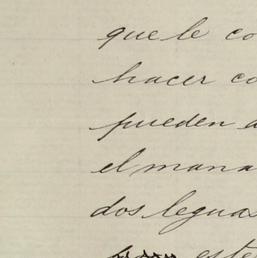 que le co
hacer co
pueden a
el mana
dos leguas
este